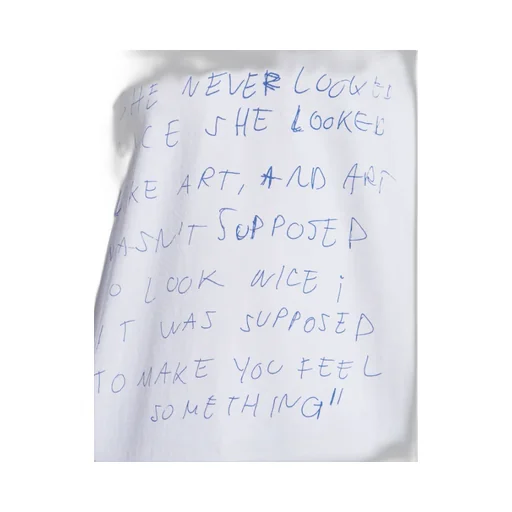 HE NEVER LOOKED
CE SHE LOOKED
IKE ART, AND ART
WASN'T SUPPOSED
O LOOK NICE;
IT WAS SUPPOSED
TO MAKE YOU FEEL
SOMETHING"